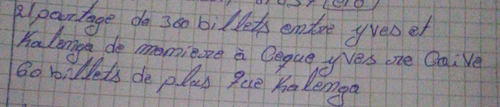 2) partage de 360 billets entre yves et
Kalenga de maniere à ceque yves re Çoive
60 billets de plus que Kalenga